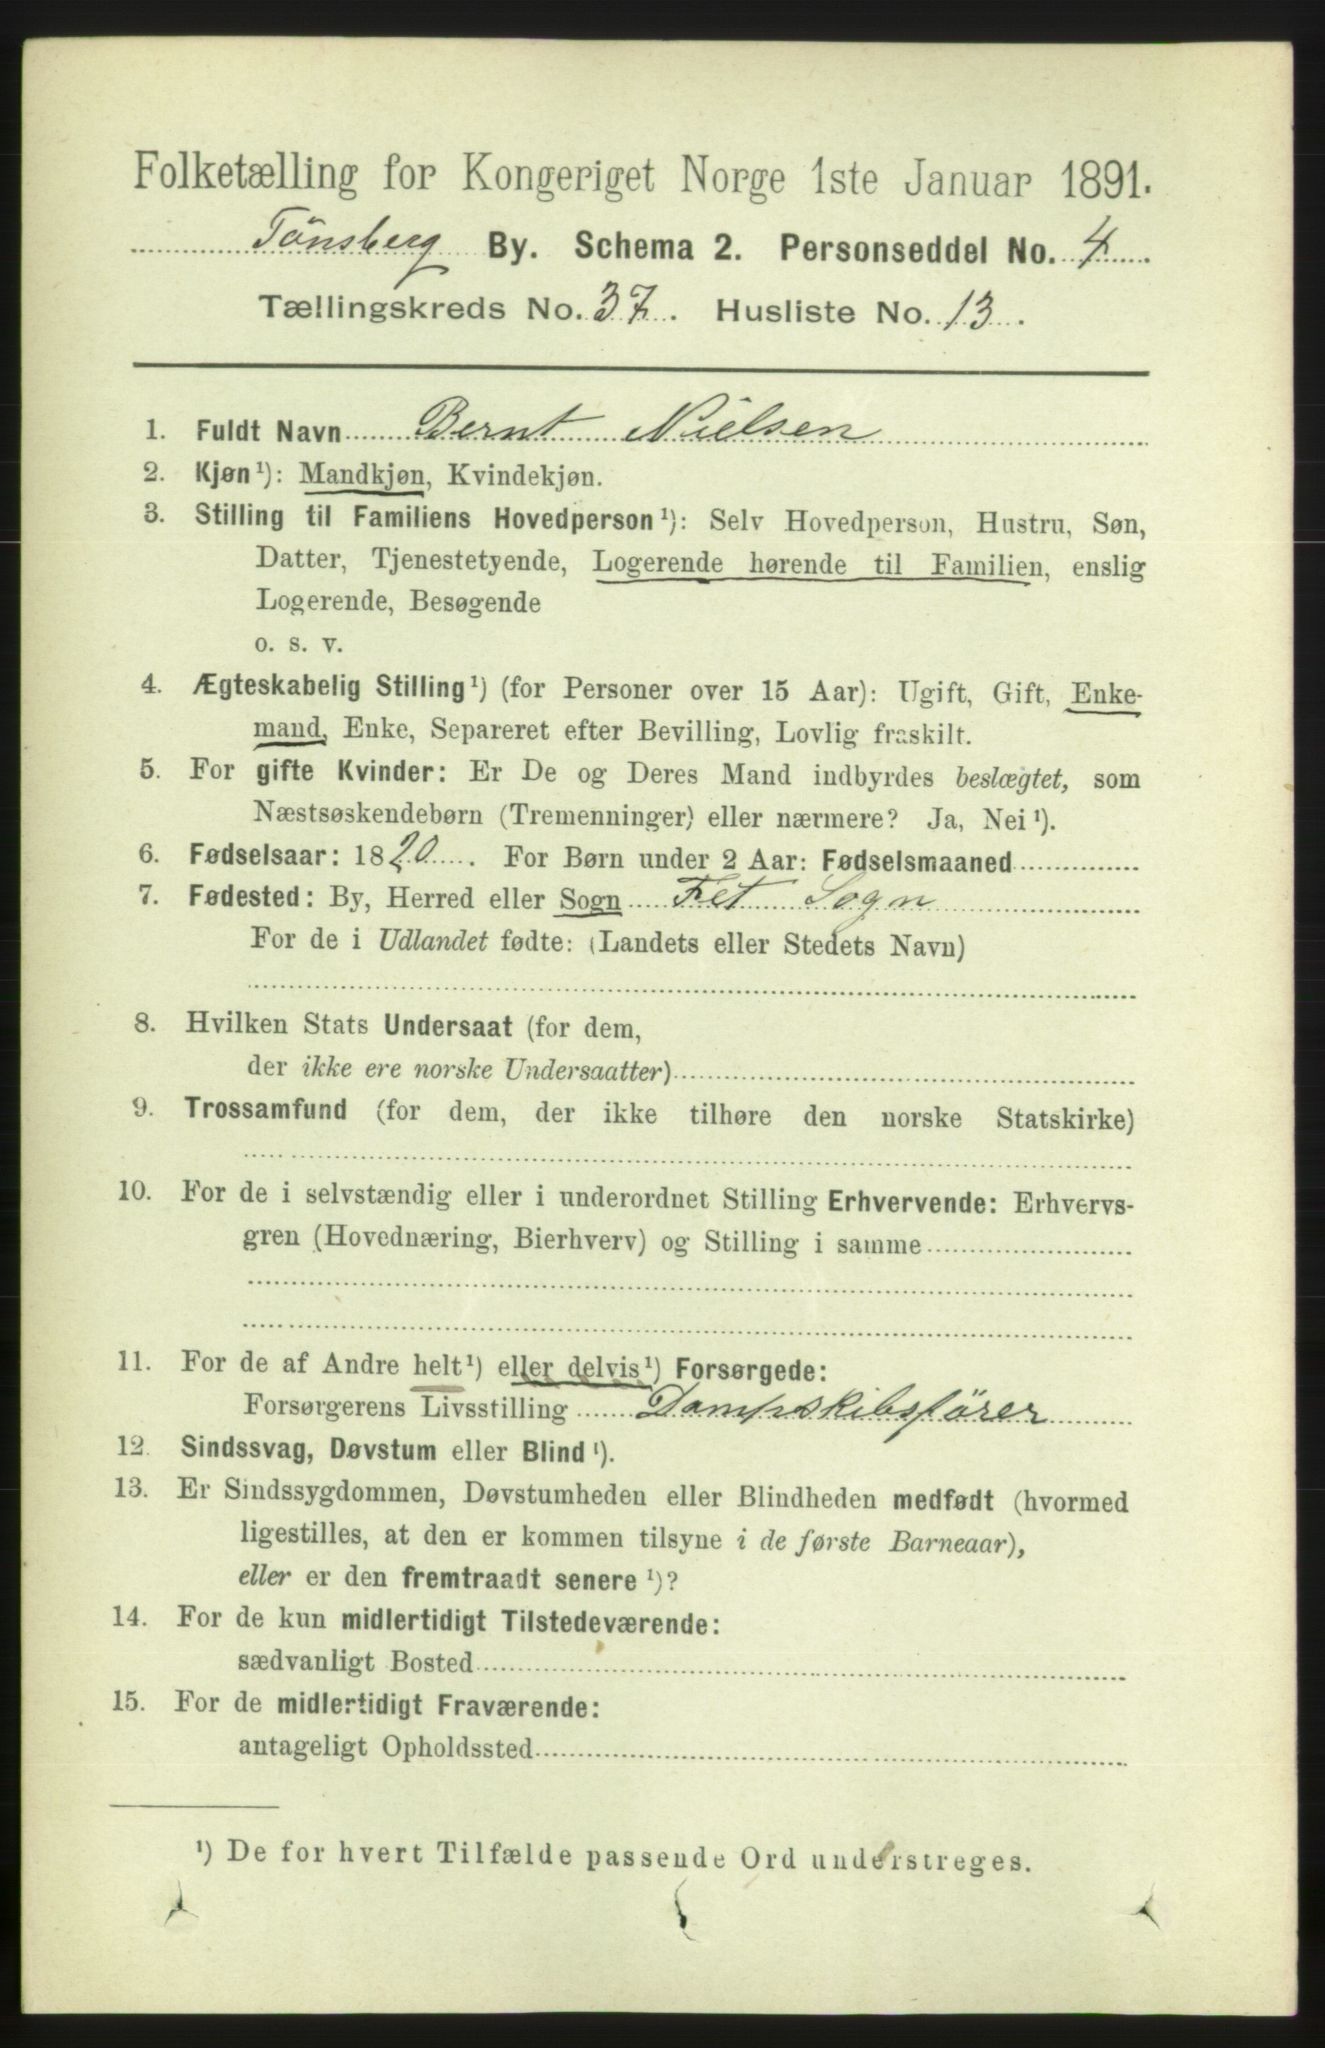 Folketælling for Kongeriget Norge 1ste Januar 1891.
Tønsberg By. Schema 2. Personseddel No. 4
Tællingskreds No. 37. Husliste No. 13.
1. Fuldt Navn Bernt Nielsen
2. Kjøn¹): Mandkjøn, Kvindekjøn.
3. Stilling til Familiens Hovedperson¹): Selv Hovedperson, Hustru, Søn,
Datter, Tjenestetyende, Logerende hørende til Familien, enslig
Logerende, Besøgende
o. s. v.
4. Ægteskabelig Stilling¹) (for Personer over 15 Aar): Ugift, Gift, Enke-
mand, Enke, Separeret efter Bevilling, Lovlig fraskilt.
5. For gifte Kvinder: Er De og Deres Mand indbyrdes beslægtet, som
Næstsøskendebørn (Tremenninger) eller nærmere? Ja, Nei¹).
6. Fødselsaar: 1820. For Børn under 2 Aar: Fødselsmaaned
7. Fødested: By, Herred eller Sogn Fet Sogn
For de i Udlandet fødte: (Landets eller Stedets Navn)
8. Hvilken Stats Undersaat (for dem,
der ikke ere norske Undersaatter)
9. Trossamfund (for dem, der ikke tilhøre den norske Statskirke)
10. For de i selvstændig eller i underordnet Stilling Erhvervende: Erhvervs-
gren (Hovednæring, Bierhverv) og Stilling i samme
11. For de af Andre helt¹) eller delvis¹) Forsørgede:
Forsørgerens Livsstilling Dampskibsfører
12. Sindssvag, Døvstum eller Blind¹).
13. Er Sindssygdommen, Døvstumheden eller Blindheden medfødt (hvormed
ligestilles, at den er kommen tilsyne i de første Barneaar),
eller er den fremtraadt senere¹)?
14. For de kun midlertidigt Tilstedeværende:
sædvanligt Bosted
15. For de midlertidigt Fraværende:
antageligt Opholdssted
¹) De for hvert Tilfælde passende Ord understreges.